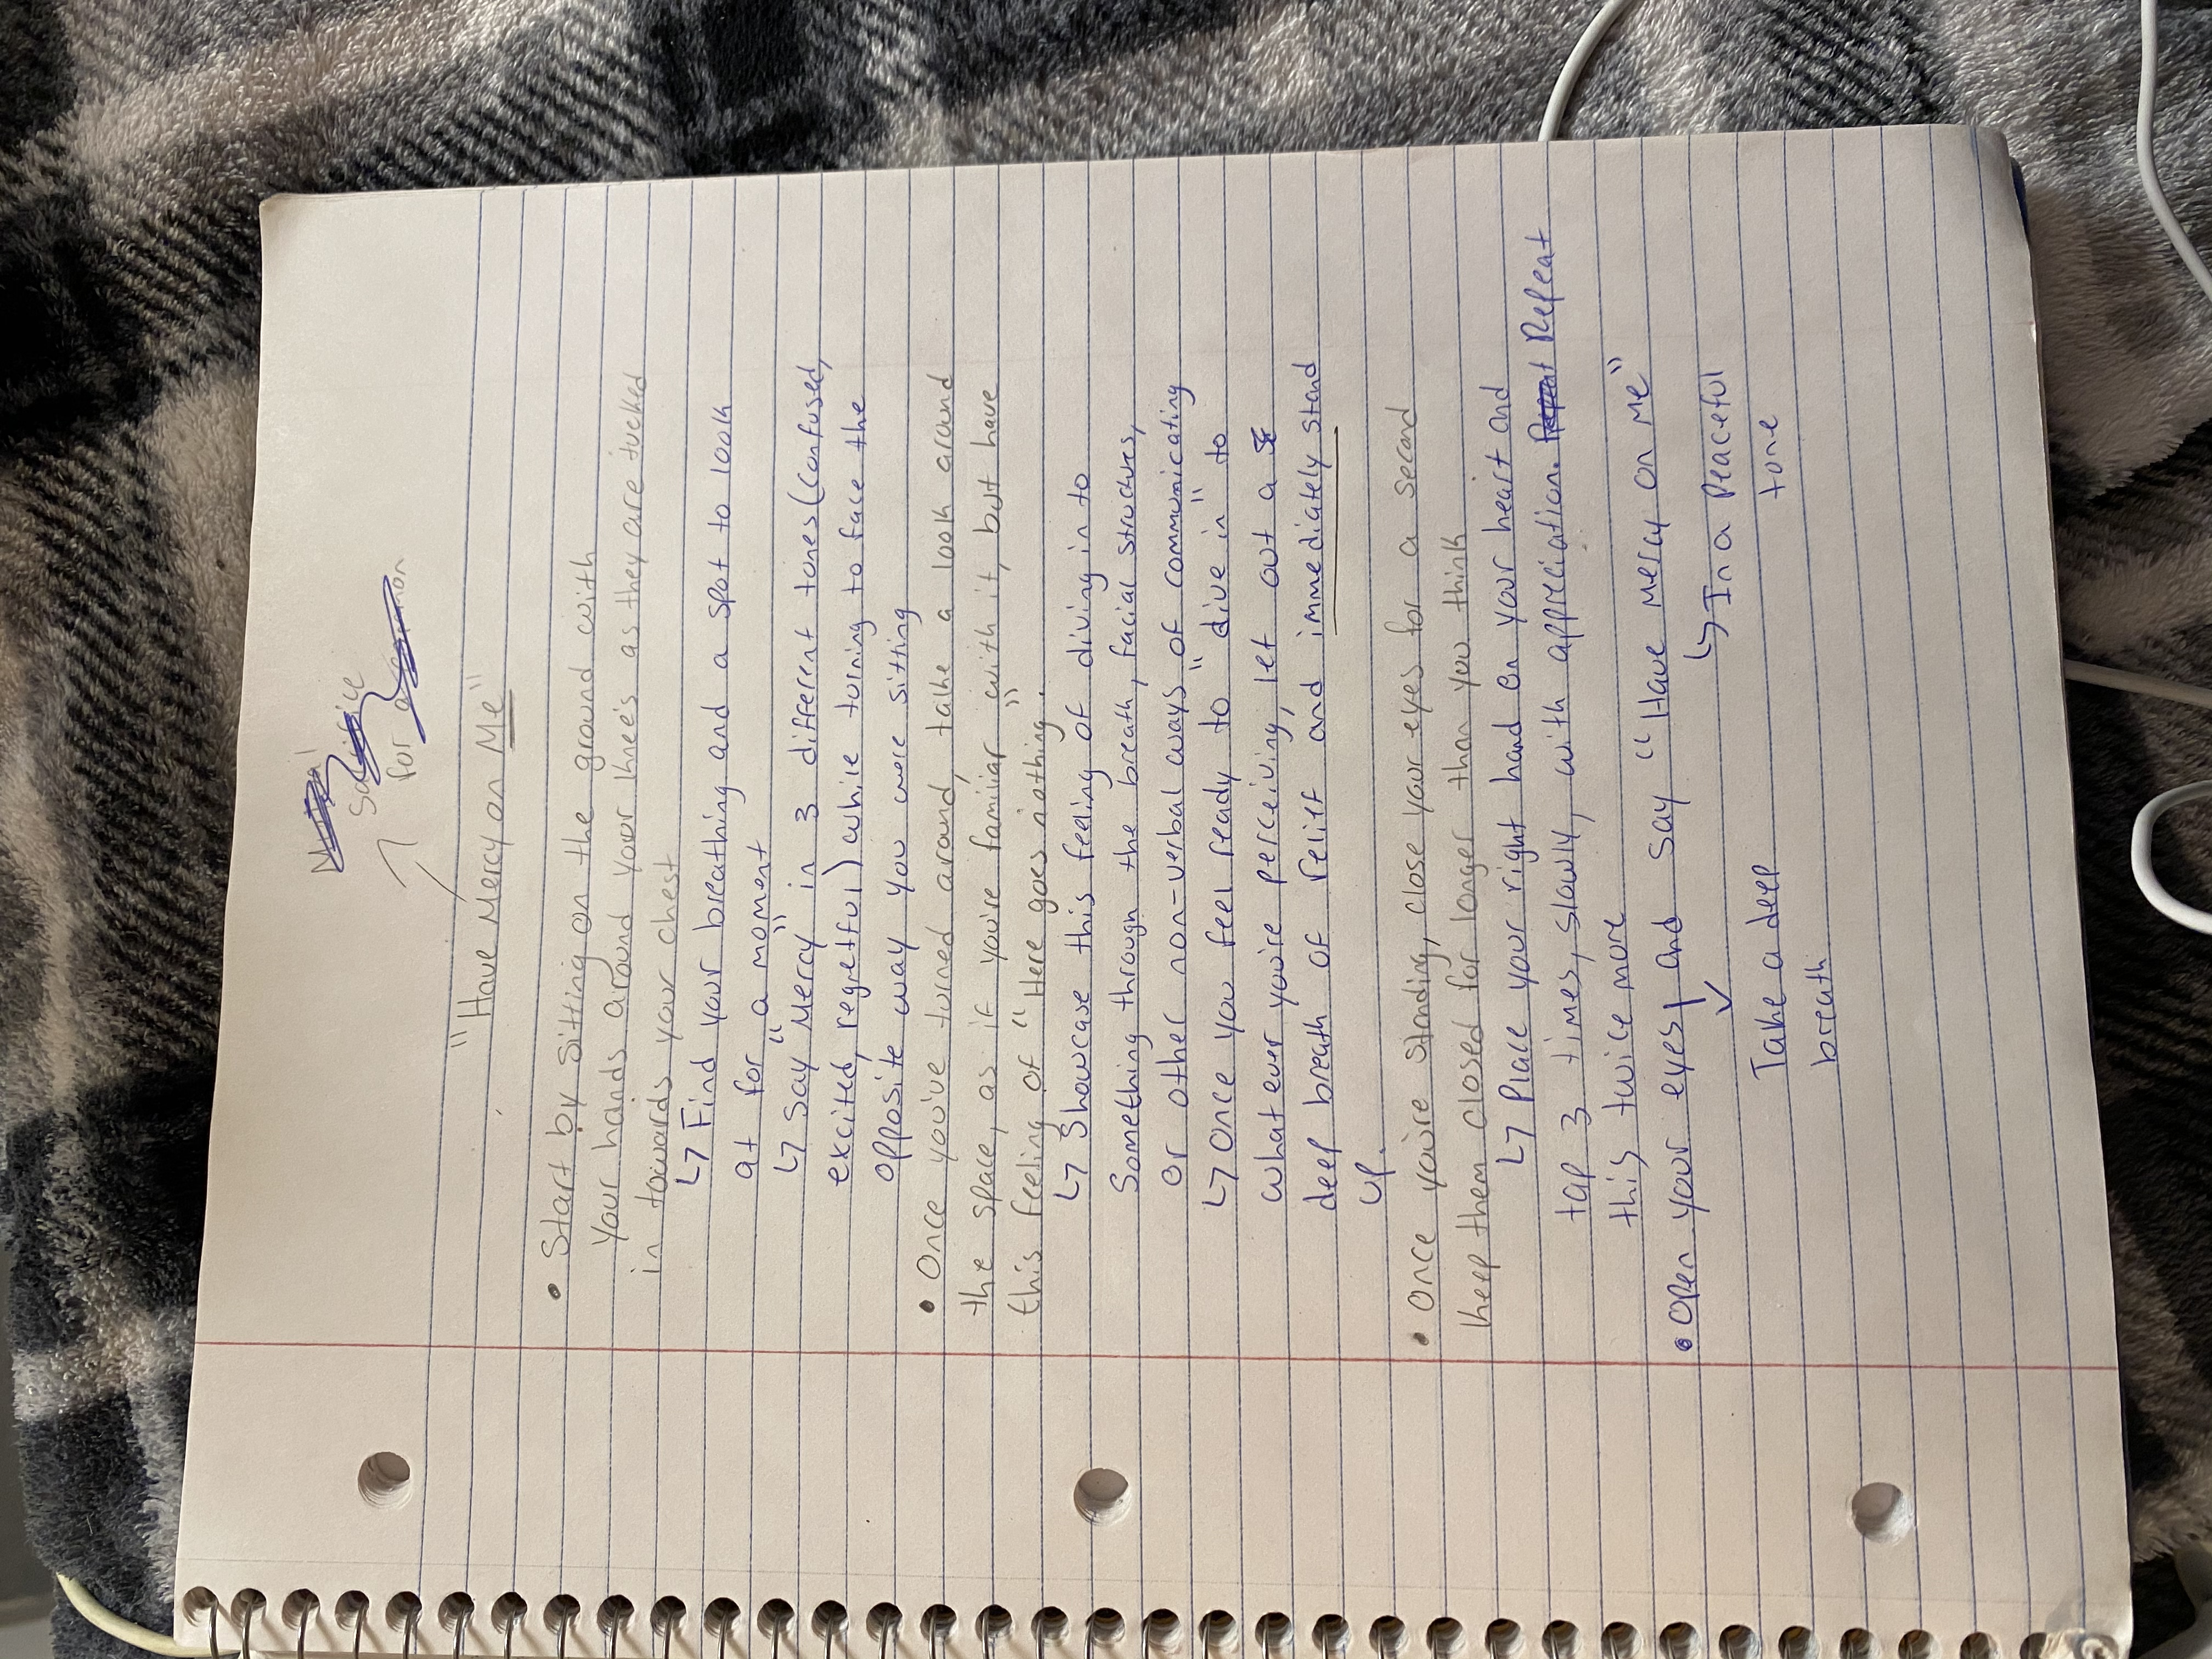 Sacrifice
for
"Have Mercy on Me"
• Start by sitting on the ground with
your hands around your knee's as they are tucked
in towards your chest
↳ Find your breathing and a spot to look
at for "a moment"
↳ Say "Mercy" in 3 different tones (confused,
excited, regretful) while turning to face the
opposite way you were sitting
• Once you've turned around, take a look around
the space, as if you're familiar with it, but have
this feeling of "Here goes nothing".
↳ Showcase this feeling of diving in to
something through the breath, facial structures,
or other non-verbal ways "of communicating
↳ Once you feel ready to "dive in" to
whatever you're perceiving, let out a
deep breath of relief and immediately stand
up.
• Once you're standing, close your eyes for a second
keep them closed for longer than you think
↳ Place your right hand on your heart and
tap 3 times, slowly, with appreciation. Repeat
this twice more
• Open your eyes and say "Have mercy on Me"
↳ In a peaceful
tone
Take a deep
breath